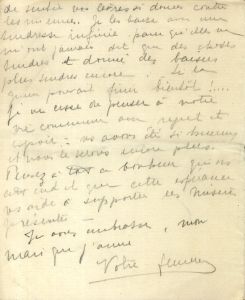 de sentir vos lèvres si douces contre
les miennes. Je les baise avec une
tendresse infinie parce qu'elles ne
m'ont jamais dit que des choses
tendres et donné des baisers
plus tendres encore. Si la
guerre pouvait finir bientôt !....
Je ne cesse de penser à notre
vie commune avec regret et
espoir : nous avons été si heureux
et nous le serons encore plus.
Pensez à tout ce bonheur qui
et que cette espérance
vous aide à supporter les misères
présentes.
Je vous embrasse, mon
mari que j'aime
Votre femme